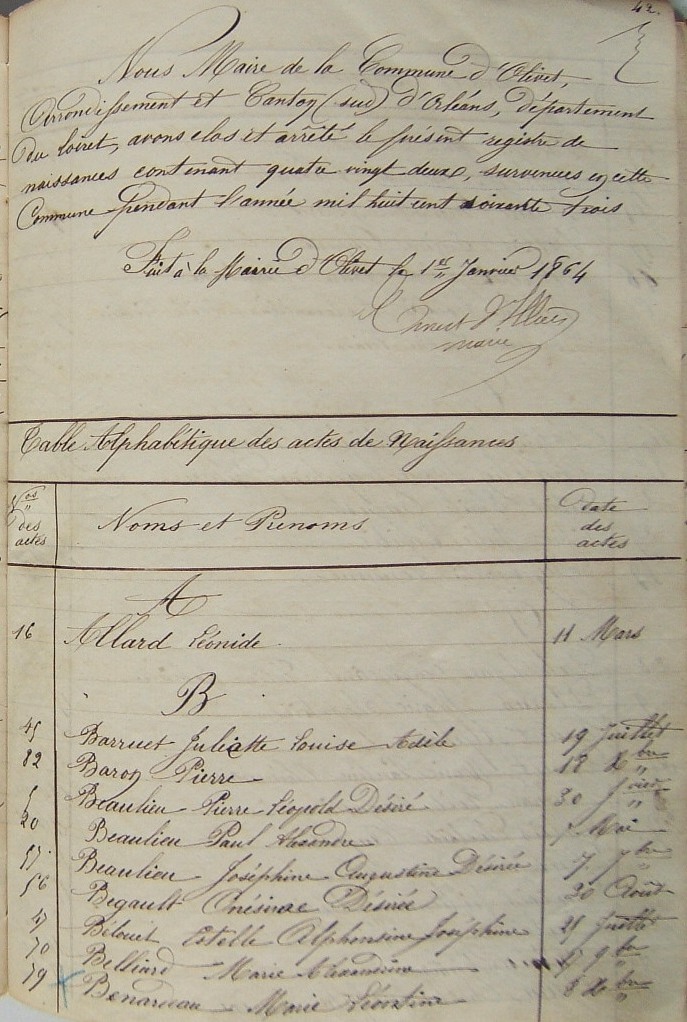 42.
Nous Maire de la Commune d'Olivet,
Arrondissement et Canton (sud) d'Orléans, département
du Loiret, avons clos et arrêté le présent registre de
naissances contenant quatre vingt deux, survenues en cette
Commune pendant l'année mil huit cent soixante trois
Fait à la Mairie d'Olivet le 1er Janvier 1864
Ernest d'Illiers
maire
Table Alphabétique des actes de Naissances
Nos des actes
Noms et Prénoms
date des actes
A
16 Allard Léonide 11 Mars
B
45 Barruet Juliette Louise Adèle 19 Juillet
82 Baron Pierre 18 Xbre
Beaulieu Pierre Léopold Désiré 30 Jvier
20 Beaulieu Paul Alexandre Mai
57 Beaulieu Joséphine Augustine Désirée 7 7bre
56 Begault Onésime Désirée 30 Août
47 Bélouet Estelle Alphonsine Joséphine 21 Juillet
70 Belliard Marie Alexandrine 9bre
79 Marie Léontine 8 Xbre